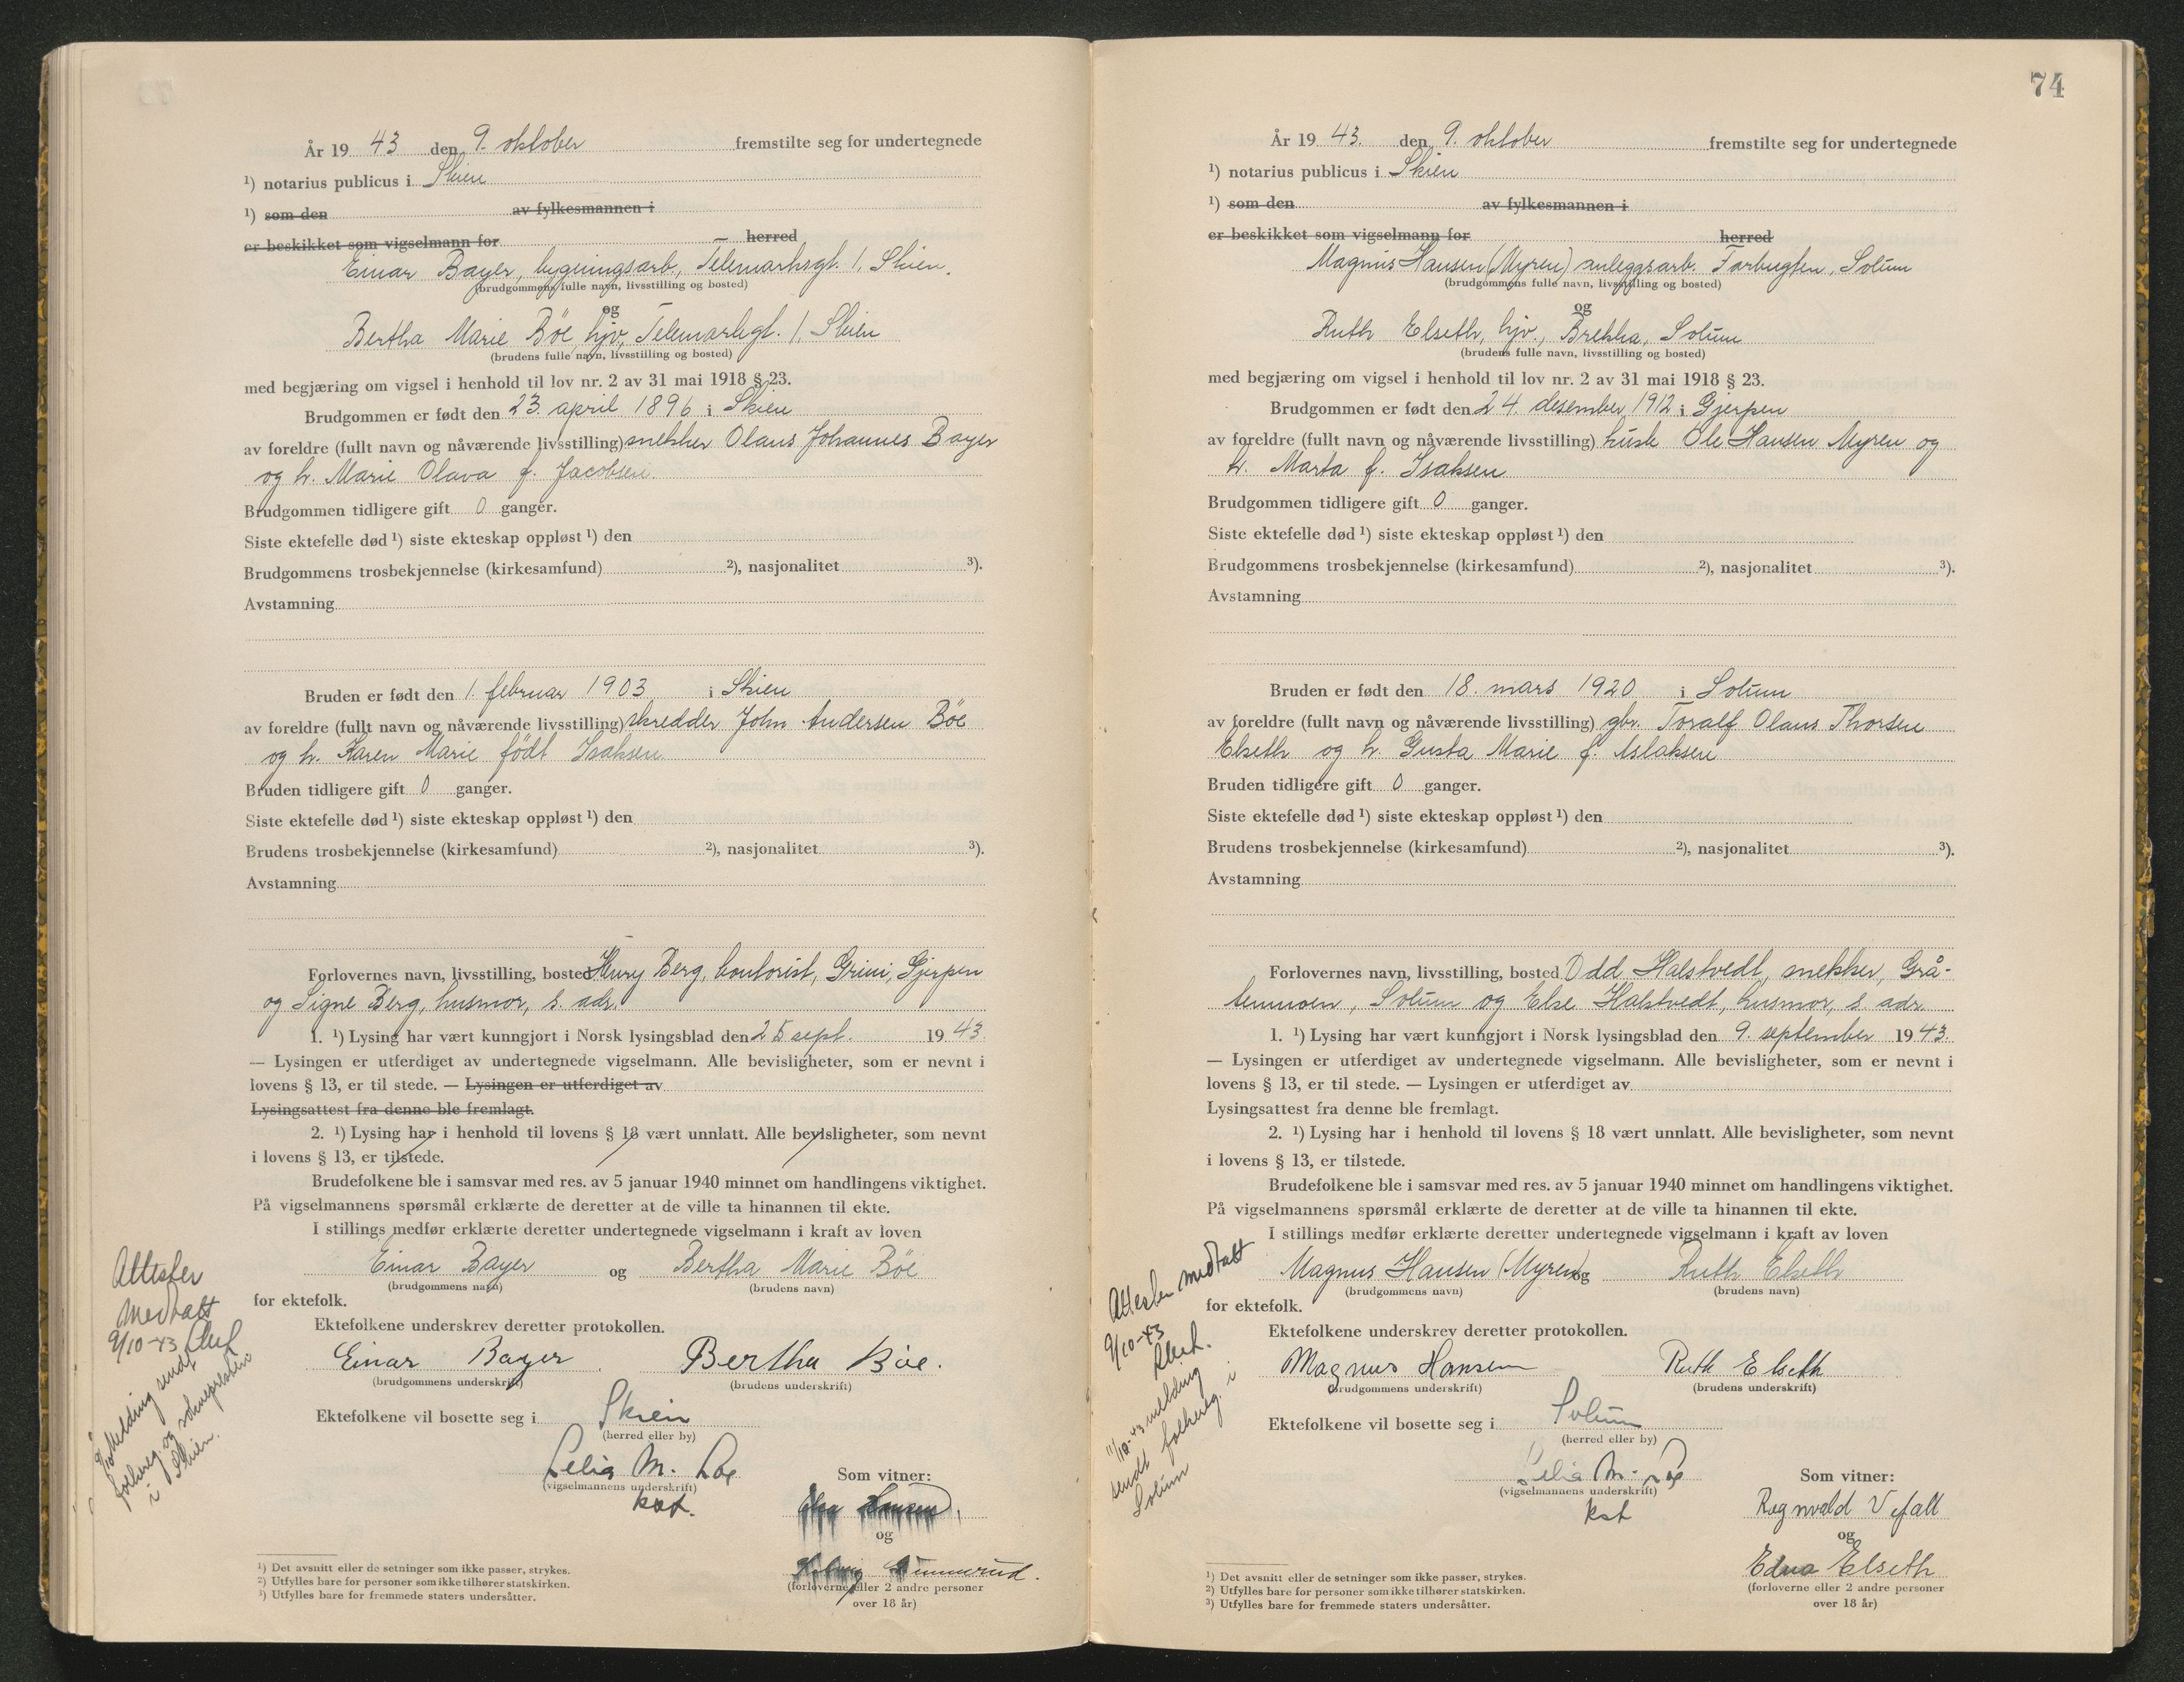 År 19 43 den 9. oktober fremstilte seg for undertegnede
¹) notarius publicus i Skien
¹) som den av fylkesmannen i
er beskikket som vigselmann for herred
Einar Bayer, bygningsarb., Telemarksgt. 1, Skien.
(brudgommens fulle navn, livsstilling og bosted)
og
Bertha Marie Böe, hjv., Telemarksgt. 1, Skien
(brudens fulle navn, livsstilling og bosted)
med begjæring om vigsel i henhold til lov nr. 2 av 31 mai 1918 § 23.
Brudgommen er født den 23. april 1896 i Skien
av foreldre (fullt navn og nåværende livsstilling) snekker Olaus Johannes Bayer
og h. Marie Olava f. Jacobsen.
Brudgommen tidligere gift 0 ganger.
Siste ektefelle død ¹) siste ekteskap oppløst ¹) den
Brudgommens trosbekjennelse (kirkesamfund) ²), nasjonalitet ³).
Avstamning
Bruden er født den 1. februar 1903 i Skien
av foreldre (fullt navn og nåværende livsstilling) skredder John Andersen Böe
og h. Karen Marie födt Isaksen
Bruden tidligere gift 0 ganger.
Siste ektefelle død ¹) siste ekteskap oppløst ¹) den
Brudens trosbekjennelse (kirkesamfund) ²), nasjonalitet ³).
Avstamning
Forlovernes navn, livsstilling, bosted Henry Berg, kontorist, Grini, Gjerpen
og Signe Berg, husmor, s. adr.
1. ¹) Lysing har vært kunngjort i Norsk lysingsblad den 25 sept. 19 43.
— Lysingen er utferdiget av undertegnede vigselmann. Alle bevisligheter, som er nevnt i
lovens § 13, er til stede. — Lysingen er utferdiget av
Lysingsattest fra denne ble fremlagt.
2. ¹) Lysing har i henhold til lovens § 18 vært unnlatt. Alle bevisligheter, som nevnt
i lovens § 13, er tilstede.
Brudefolkene ble i samsvar med res. av 5 januar 1940 minnet om handlingens viktighet.
På vigselmannens spørsmål erklærte de deretter at de ville ta hinannen til ekte.
I stillings medfør erklærte deretter undertegnede vigselmann i kraft av loven
Einar Bayer og Bertha Marie Böe
(brudgommens navn) (brudens navn)
for ektefolk.
Ektefolkene underskrev deretter protokollen.
Einar Bayer Bertha Böe.
(brudgommens underskrift) (brudens underskrift)
Ektefolkene vil bosette seg i Skien
(herred eller by)
Lelia M. Löe
(vigselmannens underskrift)
kst.
Som vitner:
Hansen
og
Gunnerud.
(forloverne eller 2 andre personer
over 18 år)
Attester
medtatt
9/10-43
Melding sendt
folkereg. og soknepresten
i Skien.
¹) Det avsnitt eller de setninger som ikke passer, strykes.
²) Utfylles bare for personer som ikke tilhører statskirken.
³) Utfylles bare for fremmede staters undersåtter.
74
År 19 43. den 9. oktober fremstilte seg for undertegnede
¹) notarius publicus i Skien
¹) som den av fylkesmannen i
er beskikket som vigselmann for herred
Magnus Hansen (Myren) anleggsarb. Farbugten, Solum
(brudgommens fulle navn, livsstilling og bosted)
og
Ruth Elseth, hjv., Brekka, Solum
(brudens fulle navn, livsstilling og bosted)
med begjæring om vigsel i henhold til lov nr. 2 av 31 mai 1918 § 23.
Brudgommen er født den 24. desember 1912 i Gjerpen
av foreldre (fullt navn og nåværende livsstilling) husb Ole Hansen Myren og
h. Marta f. Isaksen
Brudgommen tidligere gift 0 ganger.
Siste ektefelle død ¹) siste ekteskap oppløst ¹) den
Brudgommens trosbekjennelse (kirkesamfund) ²), nasjonalitet ³).
Avstamning
Bruden er født den 18. mars 1920 i Solum
av foreldre (fullt navn og nåværende livsstilling) gbr. Toralf Olaus Thorsen
Elseth og h. Gusta Marie f. Aslaksen
Bruden tidligere gift 0 ganger.
Siste ektefelle død ¹) siste ekteskap oppløst ¹) den
Brudens trosbekjennelse (kirkesamfund) ²), nasjonalitet ³).
Avstamning
Forlovernes navn, livsstilling, bosted Odd Halstvedt, snekker, Grå-
tenmoen, Solum og Else Halstvedt, husmor, s. adr.
1. ¹) Lysing har vært kunngjort i Norsk lysingsblad den 9. september 19 43.
— Lysingen er utferdiget av undertegnede vigselmann. Alle bevisligheter, som er nevnt i
lovens § 13, er til stede. — Lysingen er utferdiget av
Lysingsattest fra denne ble fremlagt.
2. ¹) Lysing har i henhold til lovens § 18 vært unnlatt. Alle bevisligheter, som nevnt
i lovens § 13, er tilstede.
Brudefolkene ble i samsvar med res. av 5 januar 1940 minnet om handlingens viktighet.
På vigselmannens spørsmål erklærte de deretter at de ville ta hinannen til ekte.
I stillings medfør erklærte deretter undertegnede vigselmann i kraft av loven
Magnus Hansen (Myren) og Ruth Elseth
(brudgommens navn) (brudens navn)
for ektefolk.
Ektefolkene underskrev deretter protokollen.
Magnus Hansen Ruth Elseth
(brudgommens underskrift) (brudens underskrift)
Ektefolkene vil bosette seg i Solum
(herred eller by)
Lelia M. Löe
(vigselmannens underskrift)
kst
Som vitner:
Ragnvald Vefall
og
Edna Elseth
(forloverne eller 2 andre personer
over 18 år)
Attester medtatt
9/10-43
11/10-43 melding
sendt folkereg. i
Solum
¹) Det avsnitt eller de setninger som ikke passer, strykes.
²) Utfylles bare for personer som ikke tilhører statskirken.
³) Utfylles bare for fremmede staters undersåtter.